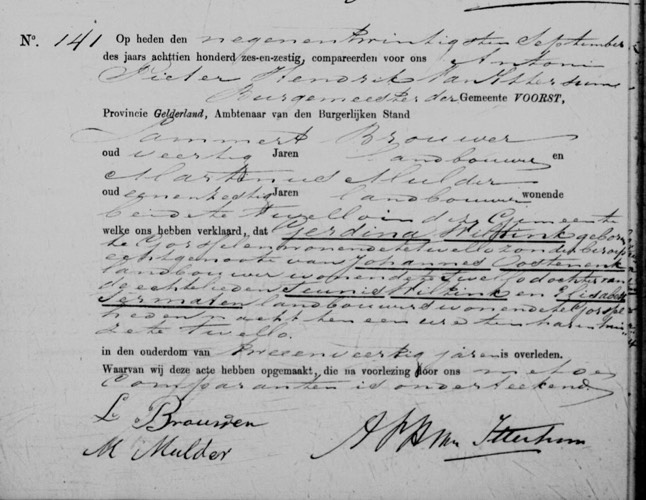 No. 141 Op heden den negenentwintigsten September
des jaars achttien honderd zes-en-zestig, compareerden voor ons Antoni
Pieter Hendrik van
Burgemeester der Gemeente VOORST,
Provincie Gelderland, Ambtenaar van den Burgerlijken Stand
Lammert Brouwer
oud veertig Jaren landbouwer en
Martinus Mulder
oud Jaren landbouwer wonende
beide te Twello in de Gemeente
welke ons hebben verklaard, dat Gerdina Wiltink geboren
te Gorssel en wonende te Twello zonder beroep
echtgenoote van Johannes Oostenenk
landbouwer wonende te Twello dochter van
de echtelieden Teunis Wiltink en
landbouwers wonende te Gorssel
heden nacht ten een ure ten haren huize
te Twello
in den ouderdom van jaren is overleden.
Waarvan wij deze acte hebben opgemaakt, die na voorlezing door ons met de
Comparanten is onderteekend
L Brouwer
M Mulder APH van Ittersum